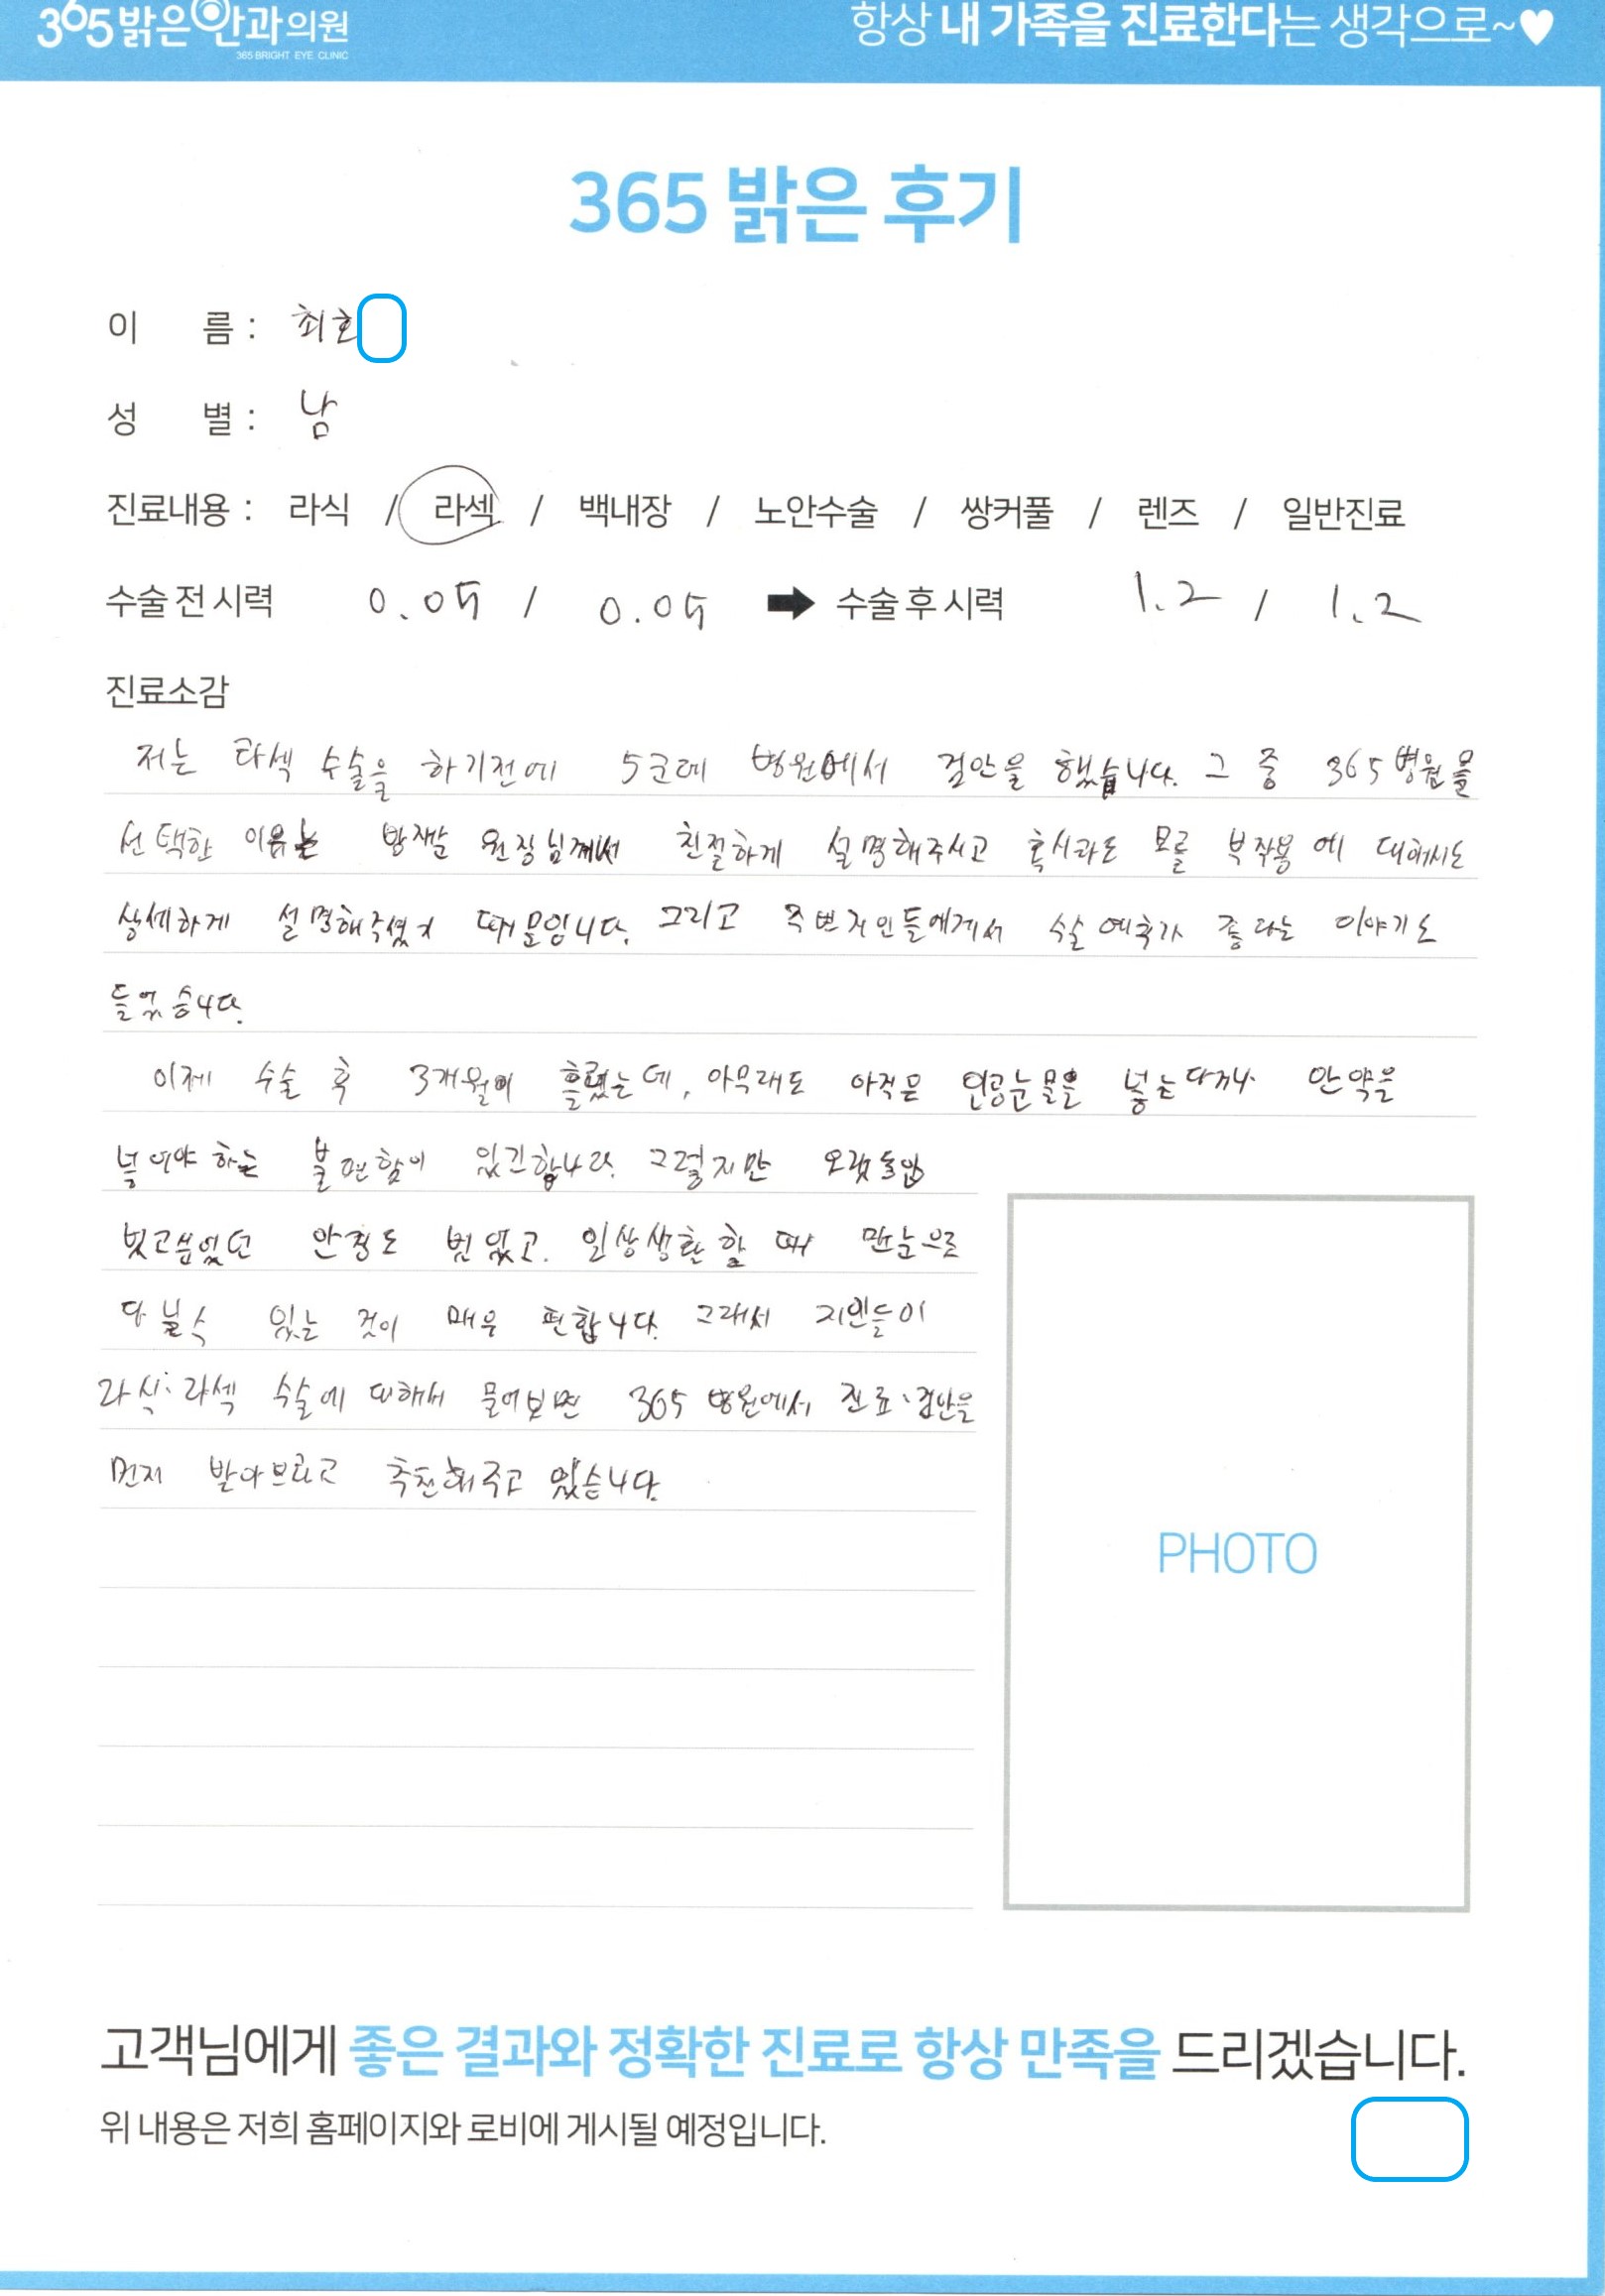 365밝은안과의원
365 BRIGHT EYE CLINIC
항상 내 가족을 진료한다는 생각으로~♥
365 밝은 후기
이 름 : 최호
성 별 : 남
진료내용 : 라식 / 라섹 / 백내장 / 노안수술 / 쌍커풀 / 렌즈 / 일반진료
수술 전 시력 0.05 / 0.05 ➡ 수술 후 시력 1.2 / 1.2
진료소감
저는 라섹 수술을 하기전에 5군데 병원에서 검안을 했습니다. 그 중 365병원을
선택한 이유는 방재순 원장님께서 친절하게 설명해주시고 혹시라도 모를 부작용에 대해서도
상세하게 설명해주셨기 때문입니다. 그리고 주변지인들에게서 수술 예후가 좋다는 이야기도
들었습니다.
이제 수술 후 3개월이 흘렀는데, 아무래도 아직은 인공눈물을 넣는다거나 안약을
넣어야 하는 불편함이 있긴합니다. 그렇지만 오랫동안
벗고싶었던 안경도 벗었고. 일상생활할 때 맨눈으로
다 볼 수 있는 것이 매우 편합니다. 그래서 지인들이
라식·라섹 수술에 대해서 물어보면 365 병원에서 진료·검안을
먼저 받아보라고 추천해주고 있습니다.
PHOTO
고객님에게 좋은 결과와 정확한 진료로 항상 만족을 드리겠습니다.
위 내용은 저희 홈페이지와 로비에 게시될 예정입니다.